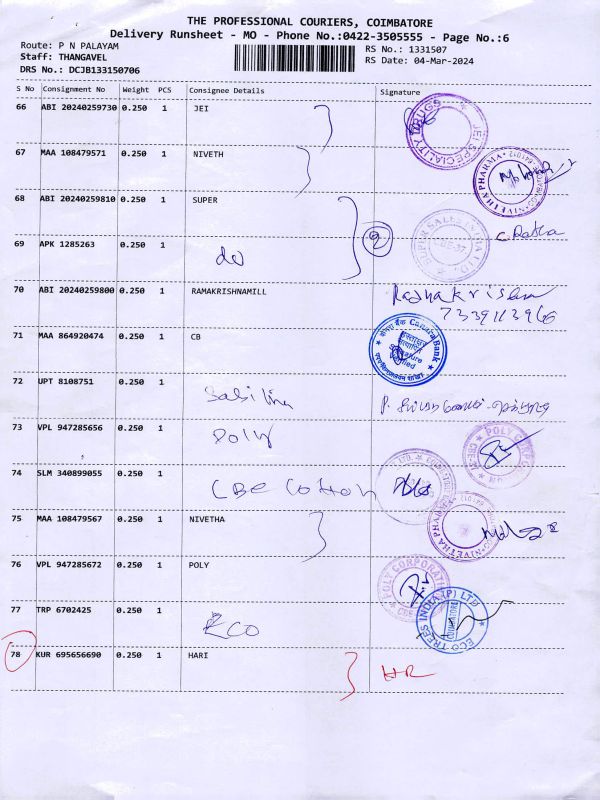 THE PROFESSIONAL COURIERS, COIMBATORE
Delivery Runsheet - MO - Phone No.:0422-3505555 - Page No.:6
Route: P N PALAYAM
RS No.: 1331507
Staff: THANGAVEL
RS Date: 04-Mar-2024
DRS No.: DCJB133150706
S No Consignment No Weight PCS Consignee Details Signature
66 ABI 20240259730 0.250 1 JEI
JEI SPECIALITY DRUGS
67 MAA 108479571 0.250 1 NIVETH
NIVETHA PHARMA
68 ABI 20240259810 0.250 1 SUPER
2
C. Radha
69 APK 1285263 0.250 1 do
70 ABI 20240259800 0.250 1 RAMAKRISHNAMILL
Radhakrishnan
7339113966
71 MAA 864920474 0.250 1 CB
केनरा बैंक Canara Bank
Signature Verified
72 UPT 8108751 0.250 1 Sabilina
73 VPL 947285656 0.250 1 Poly
POLY CORP
74 SLM 340899055 0.250 1 CBE Cotton
75 MAA 108479567 0.250 1 NIVETHA
NIVETHA PHARMA
76 VPL 947285672 0.250 1 POLY
POLY CORPORATI
77 TRP 6702425 0.250 1 ECO
ECO TREES INDIA (P) LTD
COIMBATORE
78 KUR 695656690 0.250 1 HARI
HR